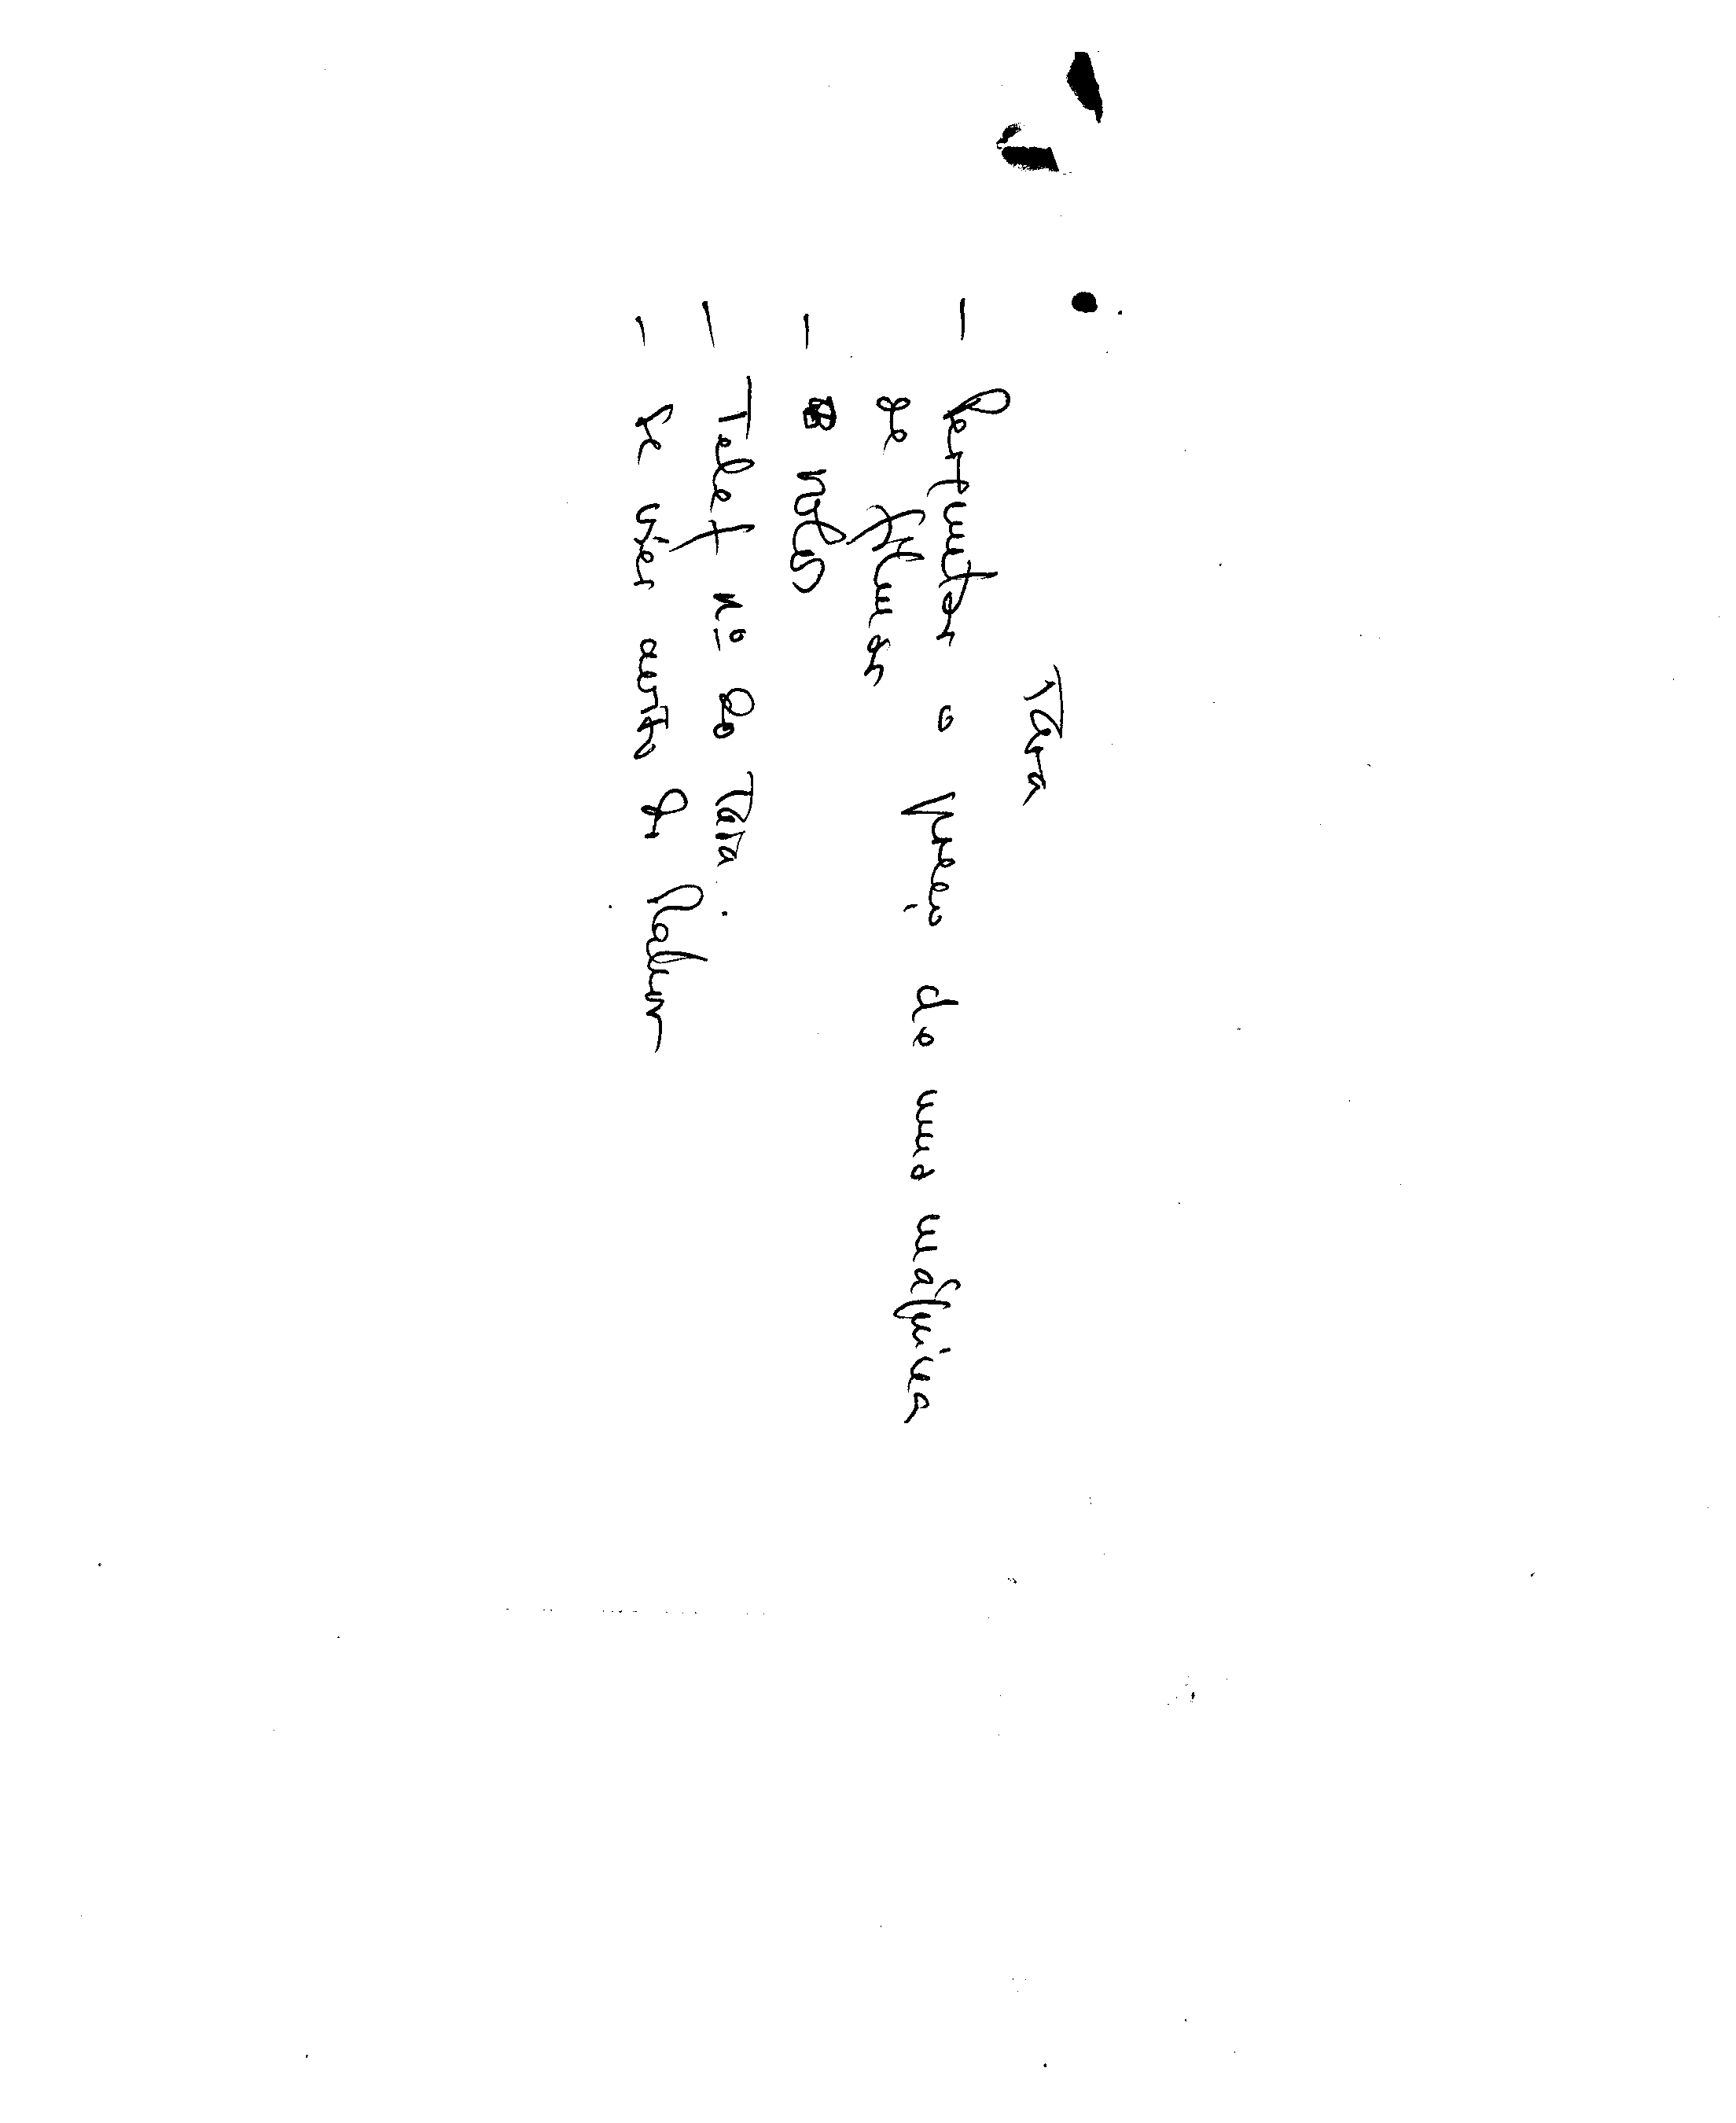 Tara
- Perguntar o preço de uma máquina
de filmar
- notas
- Telef nº do Tara.
- Se vier custo de